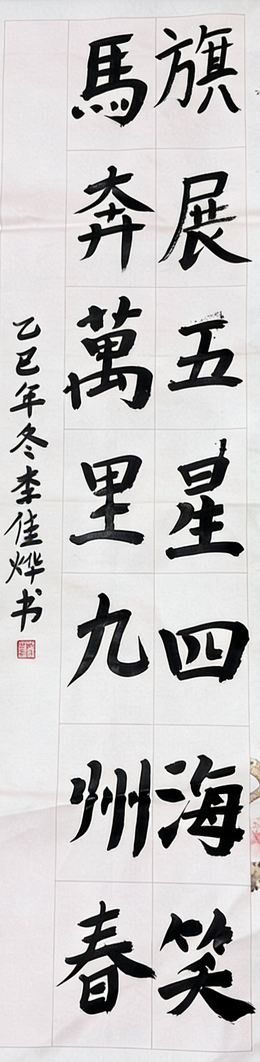 旗展五星四海笑
馬奔萬里九州春
乙巳年冬李佳烨书